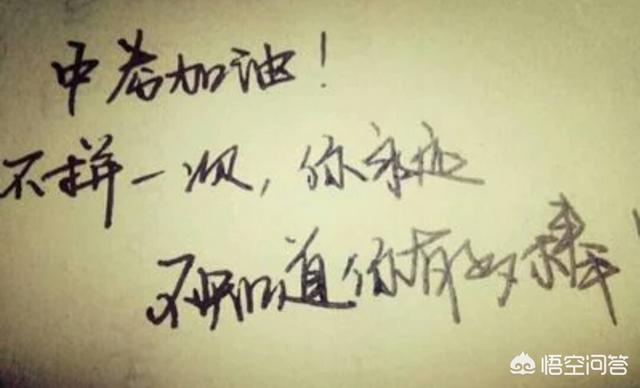 中考加油！
不拼一次，你永远
不知道你有多棒！
悟空问答